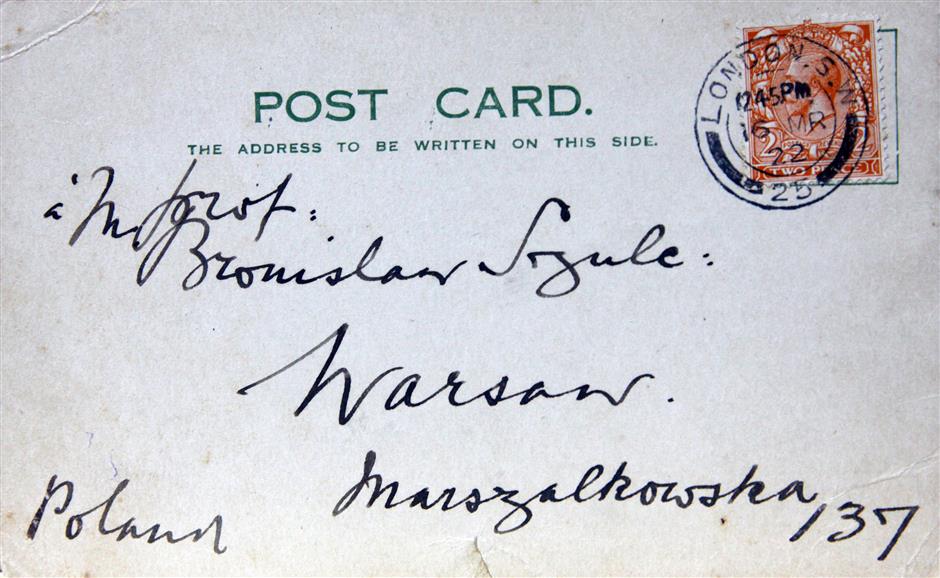 POST CARD.
THE ADDRESS TO BE WRITTEN ON THIS SIDE.
LONDON. S.W.
12.45 PM
16 MR
22
25
TWO PENCE
à M. prof:
Bronislaw Szulc:
Warsaw.
Marszalkowska 137
Poland